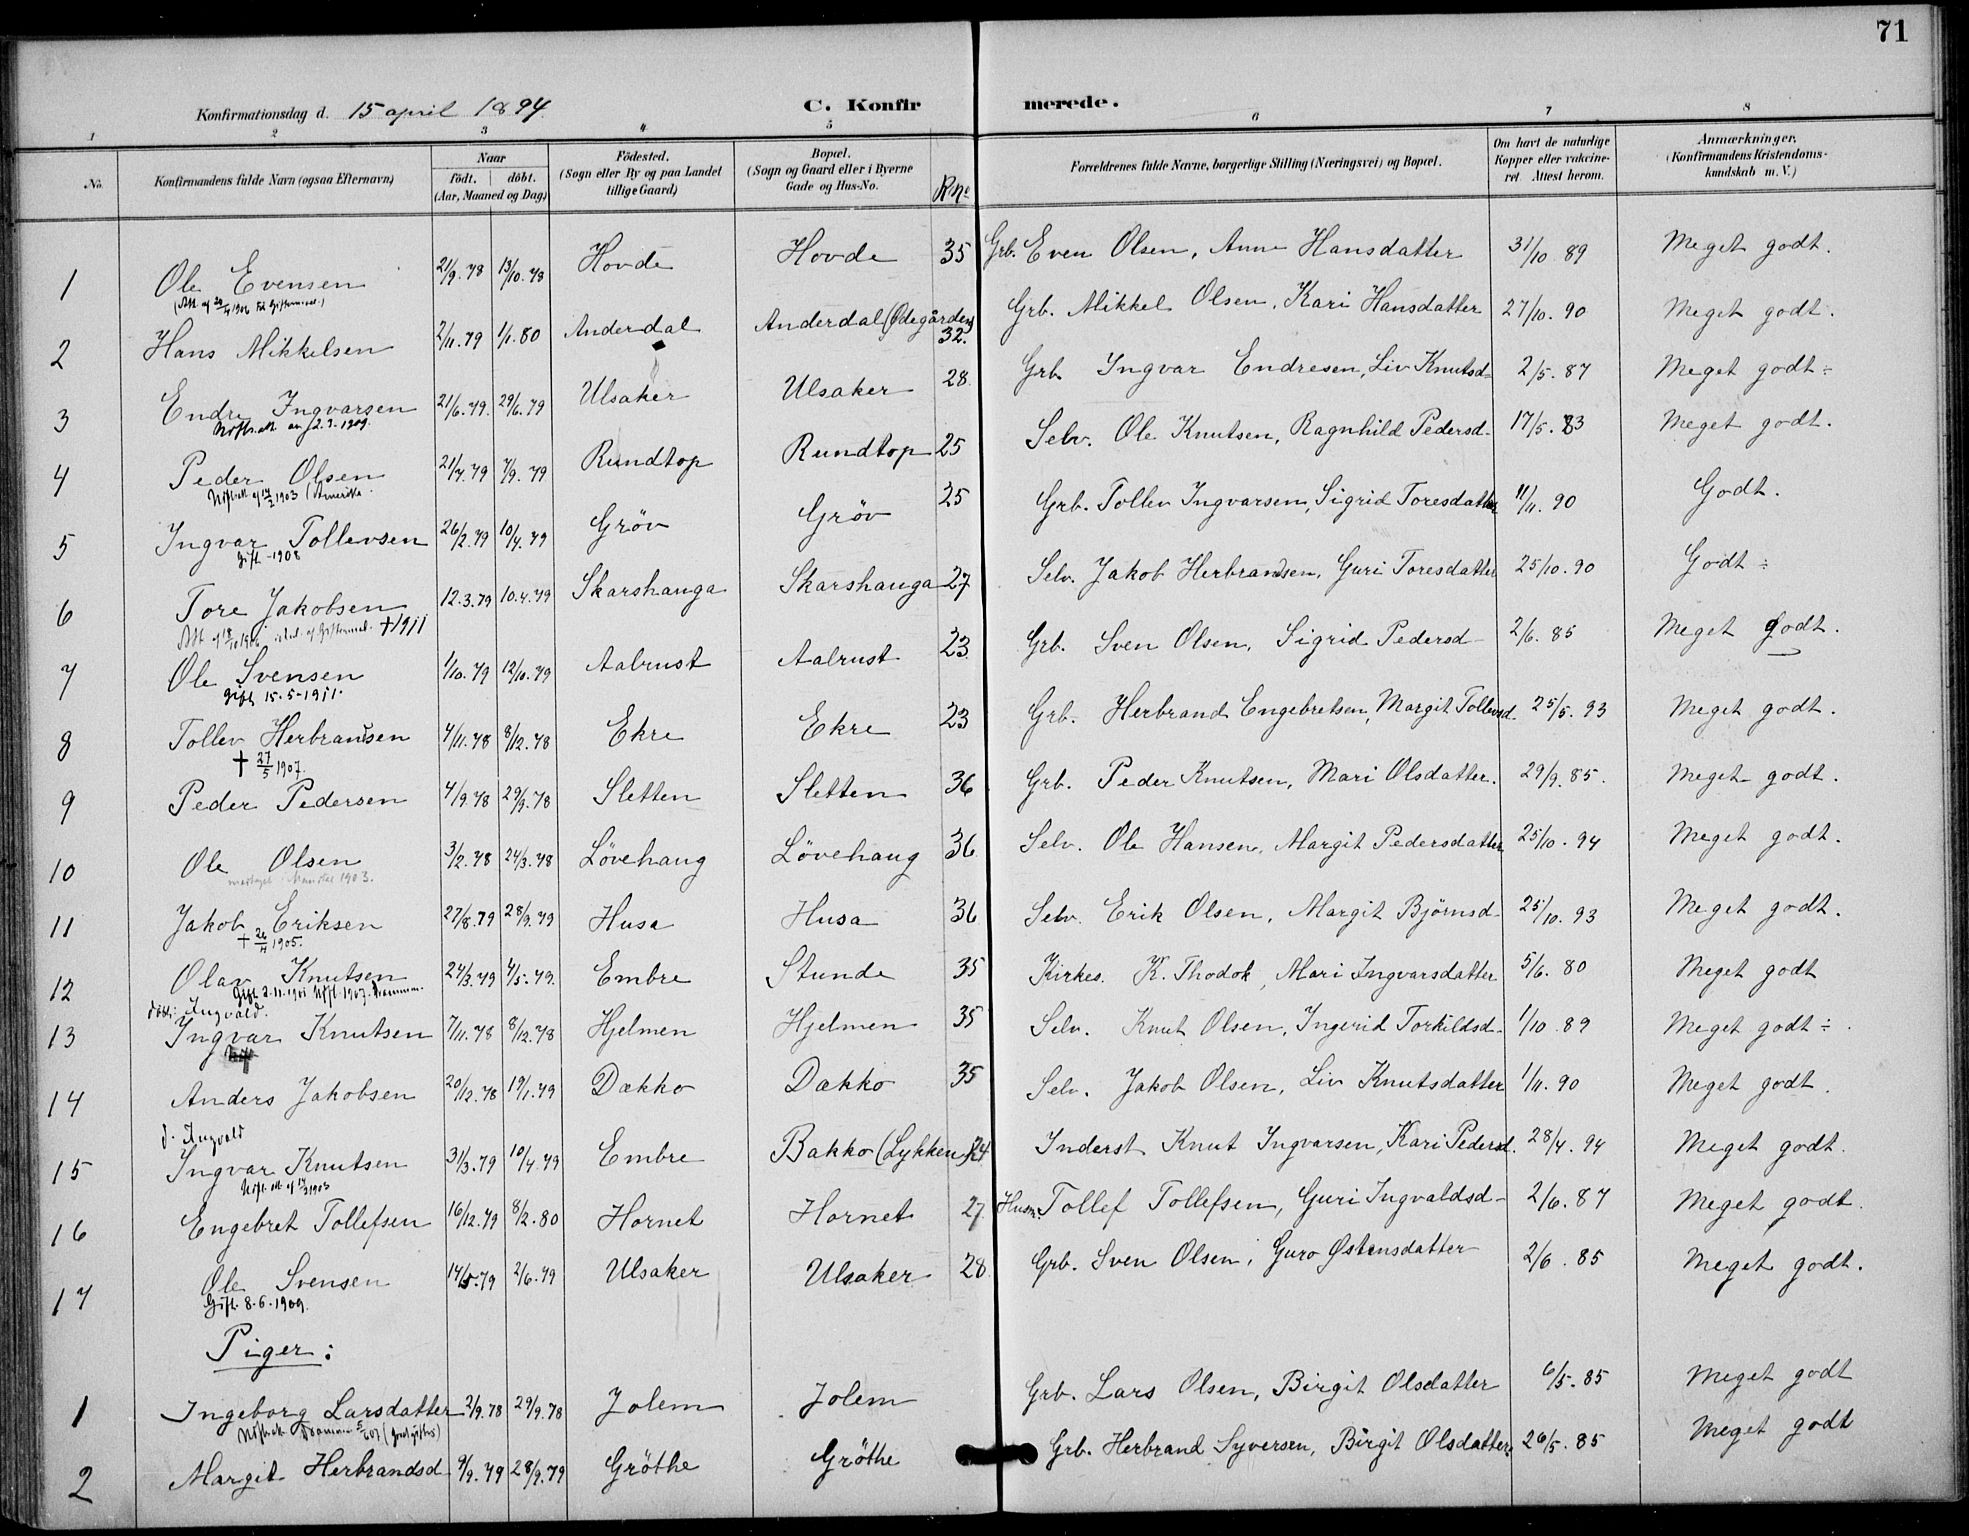 71
Konfirmationsdag d. 15 april 1894. C. Konfirmerede.
1 2 3 4 5 6 7 8
No. Konfirmandens fulde Navn (ogsaa Efternavn) Naar Födt. döbt. (Aar, Maaned og Dag) Födested. (Sogn eller By og paa Landet tillige Gaard) Bopæl. (Sogn og Gaard eller i Byerne Gade og Hus-No. R No. Forældrenes fulde Navne, borgerlige Stilling (Næringsvei) og Bopæl. Om havt de naturlige Kopper eller vakcineret. Attest herom. Anmærkninger. (Konfirmandens Kristendomskundskab m. V.)
1 Ole Evensen 21/9.78 13/10.78 Hovde Hovde 35 Grb. Even Olsen, Anne Hansdatter 31/10 89 Meget godt.
2 Hans Mikkelsen 2/11.79 1/1.80 Anderdal Anderdal (Ødegården) 32. Grb. Mikkel Olsen, Kari Hansdatter 27/10. 90 Meget godt.
3 Endre Ingvarsen 21/6.79. 29/6.79 Ulsaker Ulsaker 28 Grb. Ingvar Endresen, Liv Knutsd- 2/5. 87 Meget godt÷
2.3.1909.
4 Peder Olsen 21/7.79 7/9.79 Rundtop Rundtop 25 Selv. Ole Knutsen, Ragnhild Pedersd- 17/5. 83 Meget godt.
1903 (Amerika.
5 Ingvar Tollevsen 26/2.79 10/4.79 Gröv Gröv 25 Grb. Tollev Ingvarsen, Sigrid Toresdatter 11/11. 90 Godt.
Gift -1908
6 Tore Jakobsen 12.3.79 10.4.79 Skarshauga Skarshauga 27 Selv. Jakob Herbrandsen, Guri Toresdatter 25/10. 90 Godt ÷
†1911
7 Ole Svensen 1/10.79 12/10.79 Aalrust Aalrust 23 Grb. Sven Olsen, Sigrid Pedersd- 2/6. 85 Meget godt.
Gift 15.5-1911.
8 Tollev Herbrandsen 4/11.78 8/12.78 Ekre Ekre 23 Grb. Herbrand Engebretsen, Margit Tollevsd. 25/5. 93 Meget godt.
† 27/5 1907.
9 Peder Pedersen 4/9.78 29/9.78 Sletten Sletten 36 Grb. Peder Knutsen, Mari Olsdatter. 29/9. 85. Meget godt.
10 Ole Olsen 3/2.78 24/3.78 Lövehaug Lövehaug 36 Selv. Ole Hansen, Margit Pedersdatter 25/10. 94 Meget godt.
1903.
11 Jakob Eriksen 27/8.79 28/9.79 Husa Husa 36 Selv. Erik Olsen, Margit Björnsd- 25/10. 93 Meget godt.
1905.
12 Olav Knutsen 24/3.79 4/5.79. Embre Stunde 35 Kirkes. K. Thodok, Mari Ingvarsdatter 5/6. 80 Meget godt
döbt: Ingvald.
13 Ingvar Knutsen 7/11.78 8/12.78 Hjelmen Hjelmen 35 Selv. Knut Olsen, Ingerid Torkildsd- 1/10. 89 Meget godt ÷.
14 Anders Jakobsen 20/12.78 19/1.79 Dokko Dokko 35 Selv. Jakob Olsen, Liv Knutsdatter 1/11. 90 Meget godt.
d. Ingvald
15 Ingvar Knutsen 31/3.79 10/4.79 Embre Bakko (Lykken) 24 Inderst Knut Ingvarsen, Kari Pedersd. 28/4. 94 Meget godt.
1903
16 Engebret Tollefsen 16/12.79 8/2.80 Hornet Hornet 27. Husm. Tollef Tollefsen, Guri Ingvaldsd- 2/6. 87 Meget godt.
17 Ole Svensen 14/5.79 2/6.79 Ulsaker Ulsaker 28 Grb. Sven Olsen, Guro Østensdatter 2/6. 85 Meget godt.
Gift. 8-6-1909.
Piger:
1 Ingeborg Larsdatter 2/9.78 29/9.78 Jolem Jolem Grb. Lars Olsen, Birgit Olsdatter 6/5. 85 Meget godt
2 Margit Herbrandsd- 9/9.79 28/9.79 Gröthe Gröthe Grb. Herbrand Syversen, Birgit Olsdatter. 26/5. 85 Meget godt